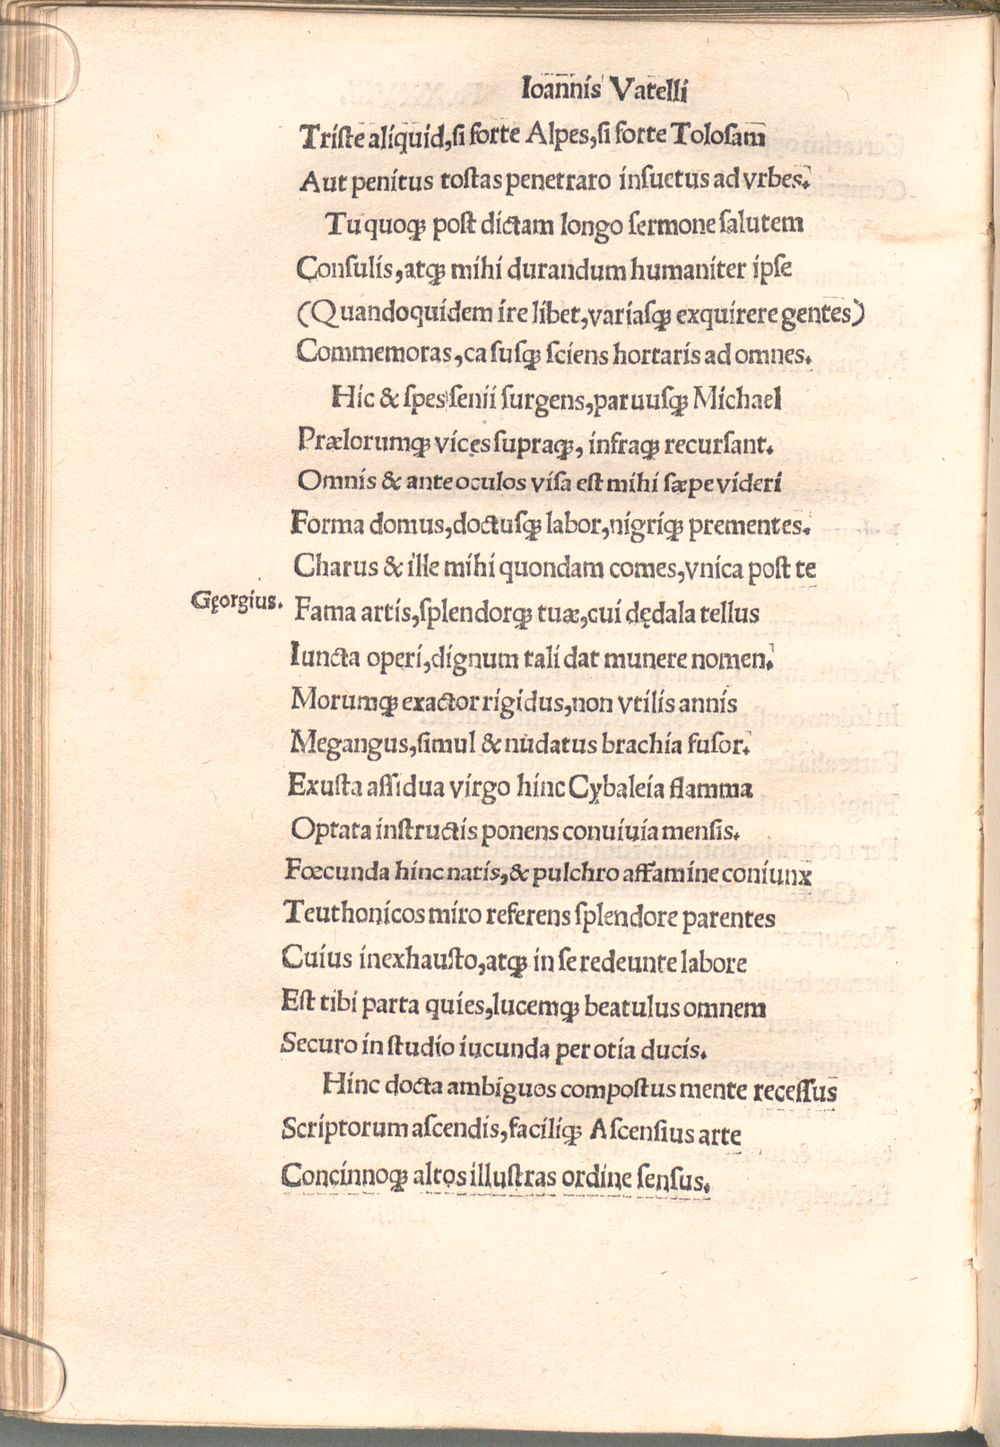 Ioannis Vatelli
Triſte aliquid,ſi forte Alpes,ſi forte Toloſam
Aut penitus toſtas penetraro inſuetus ad vrbes.
Tu quoqꝫ poſt dictam longo ſermone ſalutem
Conſulis,atqꝫ mihi durandum humaniter ipſe
(Quandoquidem ire libet,variaſqꝫ exquirere gentes)
Commemoras,caſuſqꝫ ſciens hortaris ad omnes.
Hic & ſpes ſenii ſurgens,paruuſqꝫ Michael
Prælorumqꝫ vices ſupraqꝫ, infraqꝫ recurſant.
Omnis & ante oculos viſa eſt mihi ſæpe videri
Forma domus,doctuſqꝫ labor,nigriqꝫ prementes.
Charus & ille mihi quondam comes,vnica poſt te
Gęorgius.
Fama artis,ſplendorqꝫ tuæ,cui dędala tellus
Iuncta operi,dignum tali dat munere nomen.
Morumqꝫ exactor rigidus,non vtilis annis
Megangus,ſimul & nudatus brachia fuſor.
Exuſta aſſidua virgo hinc Cybaleia flamma
Optata inſtructis ponens conuiuia menſis.
Fœcunda hinc natis,& pulchro affamine coniunx
Teuthonicos miro referens ſplendore parentes
Cuius inexhauſto,atqꝫ in ſe redeunte labore
Eſt tibi parta quies,lucemqꝫ beatulus omnem
Securo in ſtudio iucunda per otia ducis.
Hinc docta ambiguos compoſtus mente receſſus
Scriptorum aſcendis,faciliqꝫ Aſcenſius arte
Concinnoqꝫ altos illuſtras ordine ſenſus.